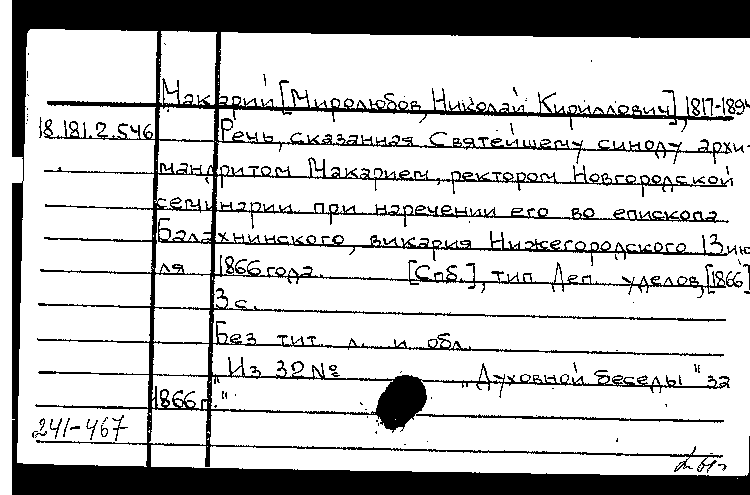 Макарий [Миролюбов, Николай Кириллович], 1817-1894
18.181.2.546 Речь, сказанная Святейшему синоду архи-
мандритом Макарием, ректором Новгородской
семинарии при наречении его во епископа
Балахнинского, викария Нижегородского 13 ию
ля 1866 года. [Спб.], тип. Деп. уделов, [1866]
3 с.
Без тит. л. и обл.
"Из 32 № „Духовной беседы" за
1866 г."
241-467